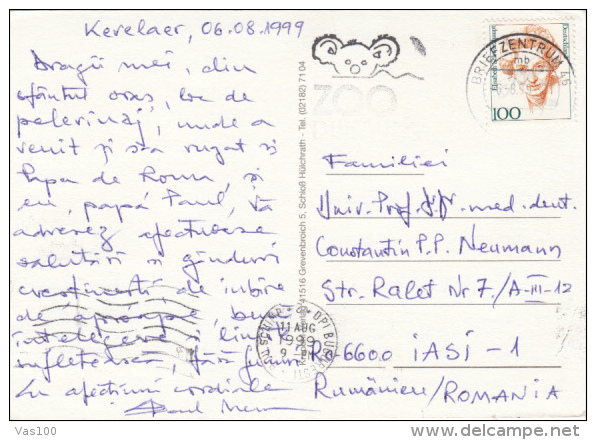 Kevelaer, 06.08.1999
Dragii mei, din
sfântul oraș, loc de
pelerinaj, unde a
venit și s-a rugat și
Papa de Roma, și
eu, papá Paul, vă
adresez afectuoase
salutări și gânduri
creștinești de iubire
de aproapele, bună
înțelegere și liniște
sufletească, fără
Cu afecțiuni cordiale
Paul
41516 Grevenbroich 5, Schloß Hülchrath - Tel. (02182) 7104
ZOO
BRIEFZENTRUM 46
mb
Deutsche Bundespost
100
Familiei
Univ. Prof. Dr. med. dent.
Constantin P.P. Neumann
Str. Ralet Nr 7/A-III-12
11 AUG
1999
Ro-6600 IAȘI - 1
Rumänien/ROMANIA
Vas100
delcampe.net